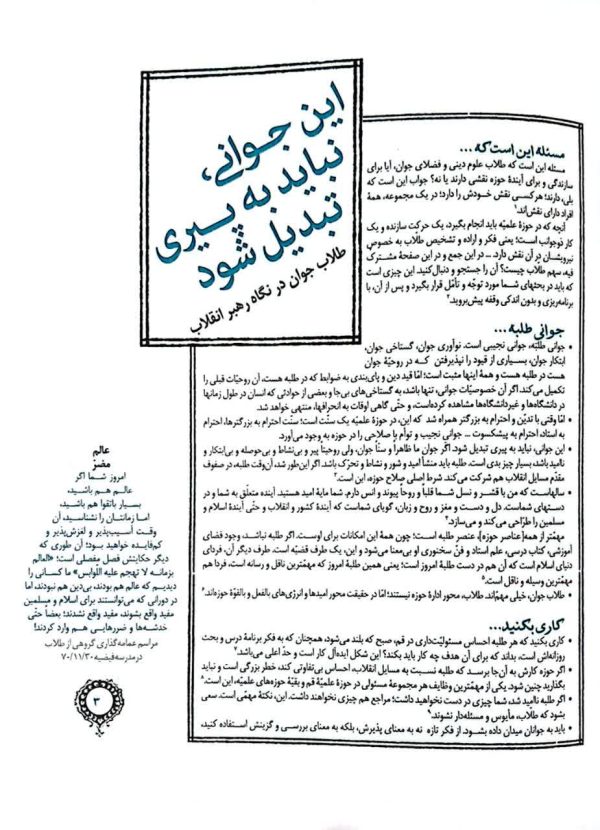 این جوانی،
نباید به پیری
تبدیل شود
طلاب جوان در نگاه رهبر انقلاب
مسئله این است که ...
مسئله این است که طلاب علوم دینی و فضلای جوان، آیا برای
سازندگی و برای آیندهٔ حوزه نقشی دارند یا نه؟ جواب این است که
بلی، دارند؛ هرکسی نقش خودش را دارد؛ در یک مجموعه، همهٔ
افراد دارای نقش‌اند.
آنچه که در حوزهٔ علمیّه باید انجام بگیرد، یک حرکت سازنده و یک
کار نوجوانب است؛ یعنی فکر و اراده و تشخیص طلّاب به خصوص
نیروبشان در آن نقش دارد. ... در این جمع و در این صفحهٔ مشترک
فیه، سهم طلّاب چیست؟ آن را جستجو و دنبال کنید. این چیزی است
که باید در بحثهای شما مورد توجّه و تأمّل قرار بگیرد و پس از آن، با
برنامه‌ریزی و بدون اندکی وقفه پیش بروید.
جوانی طلبه ...
• جوانی طلبه، جوانی نجیبی است. نوآوری جوان، گستاخی جوان،
ابتکار جوان، بسیاری از قیود را نپذیرفتن که در روحیّهٔ جوان
هست در طلبه هست و همهٔ اینها مثبت است؛ امّا قید دین و پای‌بندی به ضوابط که در طلبه هست، آن روحیّات قبلی را
تکمیل می‌کند. اگر آن خصوصیّات جوانی، تنها باشد، به گستاخی‌های بی‌جا و بعضی از حوادثی که انسان در طول زمانها
در دانشگاه‌ها و غیردانشگاه‌ها مشاهده کرده‌است، و حتّی گاهی اوقات به انحرافها، منتهی خواهد شد.
• امّا وقتی با تدیّن و احترام به بزرگتر همراه شد که این، در حوزهٔ علمیّه یک سنّت است؛ سنّت احترام به بزرگترها، احترام
به استاد، احترام به پیشکسوت ... جوانی نجیب و توأم با صلاحی را در حوزه به وجود می‌آورد.
• این جوانی، نباید به پیری تبدیل شود. اگر جوان ما ظاهراً و سنّاً جوان، ولی روحیتا پیر و بی‌نشاط و بی‌حوصله و بی‌ابتکار و
ناامید باشد، بسیار چیز بدی است. طلبه باید منشأ امید و شور و نشاط و تحرّک باشد. اگر این‌طور شد، آن‌وقت طلبه، در صفوف
مقدّم مسایل انقلاب هم شرکت می‌کند. شرط اصلی صلاح حوزه، این است.
• سالهاست که من با قشر و نسل شما قلباً و روحاً پیوند و انس دارم. شما مایهٔ امید هستید. آینده متعلّق به شما و در
دستهای شماست. دل و دست و مغز و روح و زبان، گویای شماست که آیندهٔ کشور و انقلاب و حتّی آیندهٔ اسلام و
مسلمین را طرّاحی می‌کند و می‌سازد.
• مهمّتر از همه[عناصر حوزه]، عنصر طلبه است؛ چون همهٔ این امکانات برای اوست. اگر طلبه نباشد، وجود فضای
آموزشی، کتاب درسی، علم استاد و فنّ سخنوری او بی‌معنا می‌شود و این، یک طرف قضیّه است. طرف دیگر آن، فردای
دنیای اسلام است که آن هم در دست طلبهٔ امروز است؛ یعنی همین طلبهٔ امروز که مهمّترین ناقل و رسانه است، فردا هم
مهمّترین وسیله و ناقل است.
• طلّاب جوان، خیلی مهمّ‌اند. طلّاب، محور ادارهٔ حوزه نیستند؛ امّا در حقیقت محور امیدها و انرژی‌های بالفعل و بالقوّهٔ حوزه‌اند.
کاری بکنید ...
• کاری بکنید که هر طلبه احساس مسئولیّت‌داری در قم، صبح که بلند می‌شود، همچنان که به فکر برنامهٔ درس و بحث
روزانه‌اش است، بداند که برای آن هدف چه کار باید بکند؟ این شکل ایده‌آل کار است و حدّ اعلی می‌باشد.
• اگر حوزه کارش به آن‌جا برسد که طلبه نسبت به مسایل انقلاب، احساس بی‌تفاوتی کند، خطر بزرگی است و نباید
بگذارید چنین شود. یکی از مهمّترین وظایف هر مجموعهٔ مسئولی در حوزهٔ علمیّهٔ قم و بقیّهٔ حوزه‌های علمیّه، این است.
• اگر طلبه ناامید شد، شما چیزی در دست نخواهید داشت؛ مراجع هم چیزی نخواهند داشت. این، نکتهٔ مهمّی است. سعی
بشود که طلّاب، مأیوس و مسئله‌دار نشوند.
• باید به جوانان میدان داده بشود. از فکر تازه نه به معنای پذیرش، بلکه به معنای بررسی و گزینش استفاده کنید.
عالم
مضرّ
امروز شما اگر
عالم هم باشید،
بسیار باتقوا هم باشید،
اما زمانتان را نشناسید، آن
وقت آسیب‌پذیر و لغزش‌پذیر و
کم‌فایده خواهید بود؛ آن طوری که
دیگر حکایتش فصل مفصلی است؛ «العالم
بزمانه لا تهجم علیه اللوابس» ما کسانی را
دیدیم که عالم هم بودند، بی‌دین هم نبودند، اما
در دورانی که می‌توانستند برای اسلام و مسلمین
مفید واقع بشوند، مفید واقع نشدند؛ بعضاً حتّی
خدشه‌ها و ضررهایی هم وارد کردند!
مراسم عمامه‌گذاری گروهی از طلاب
در مدرسه فیضیه ۷۰/۱۱/۳۰
۳